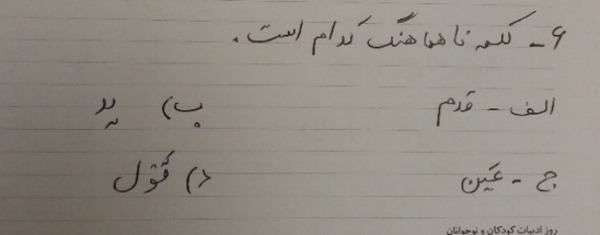 ۶- کلمه ناهماهنگ کدام است.
الف - قدم ب) ید
ج - عین د) قول
روز ادبیات کودکان و نوجوانان